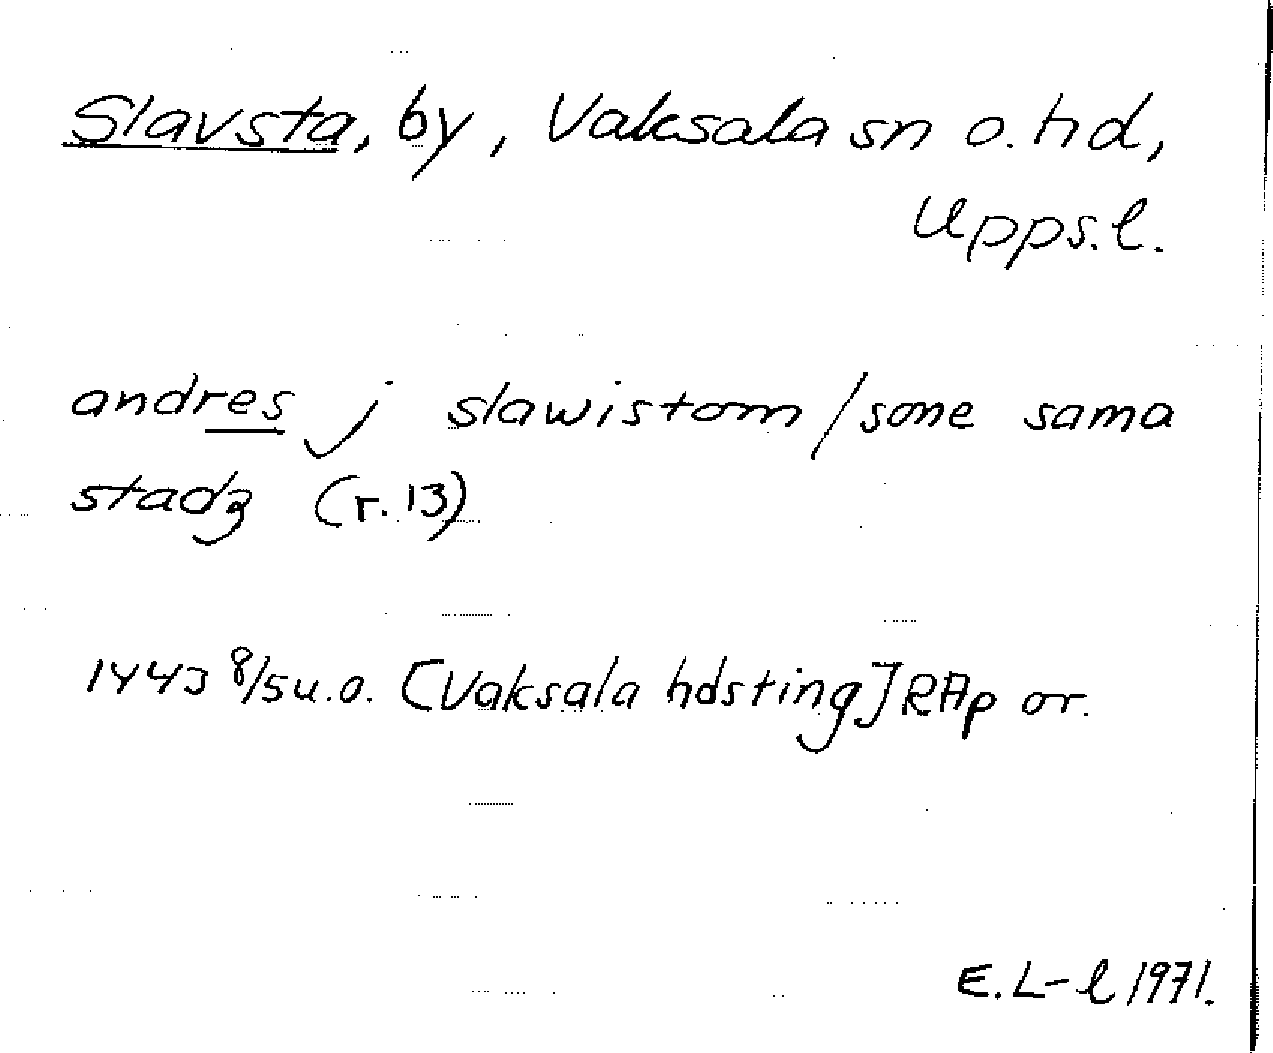 Slavsta, by, Vaksala sn o. hd,
Upps. l.
andres j slawistom / sone sama
stadz (r. 13)
1443 8/5 u.o. [Vaksala hdsting] RAp or.
E. L-l 1971.